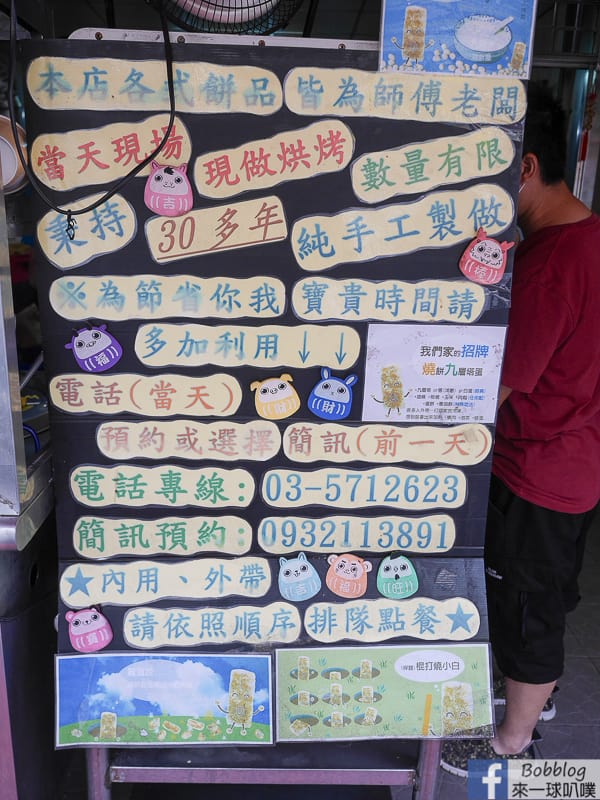 本店各式餅品 皆為師傅老闆
當天現場 現做烘烤 數量有限
秉持 30多年 純手工製做
※為節省你我 寶貴時間請
多加利用↓↓
我們家的招牌
燒餅九層塔蛋
電話(當天)
預約或選擇 簡訊(前一天)
電話專線: 03-5712623
簡訊預約: 0932113891
★內用、外帶
請依照順序 排隊點餐★
棍打燒小白
吉
福
財
吉
福
旺
Bobblog
來一球叭噗